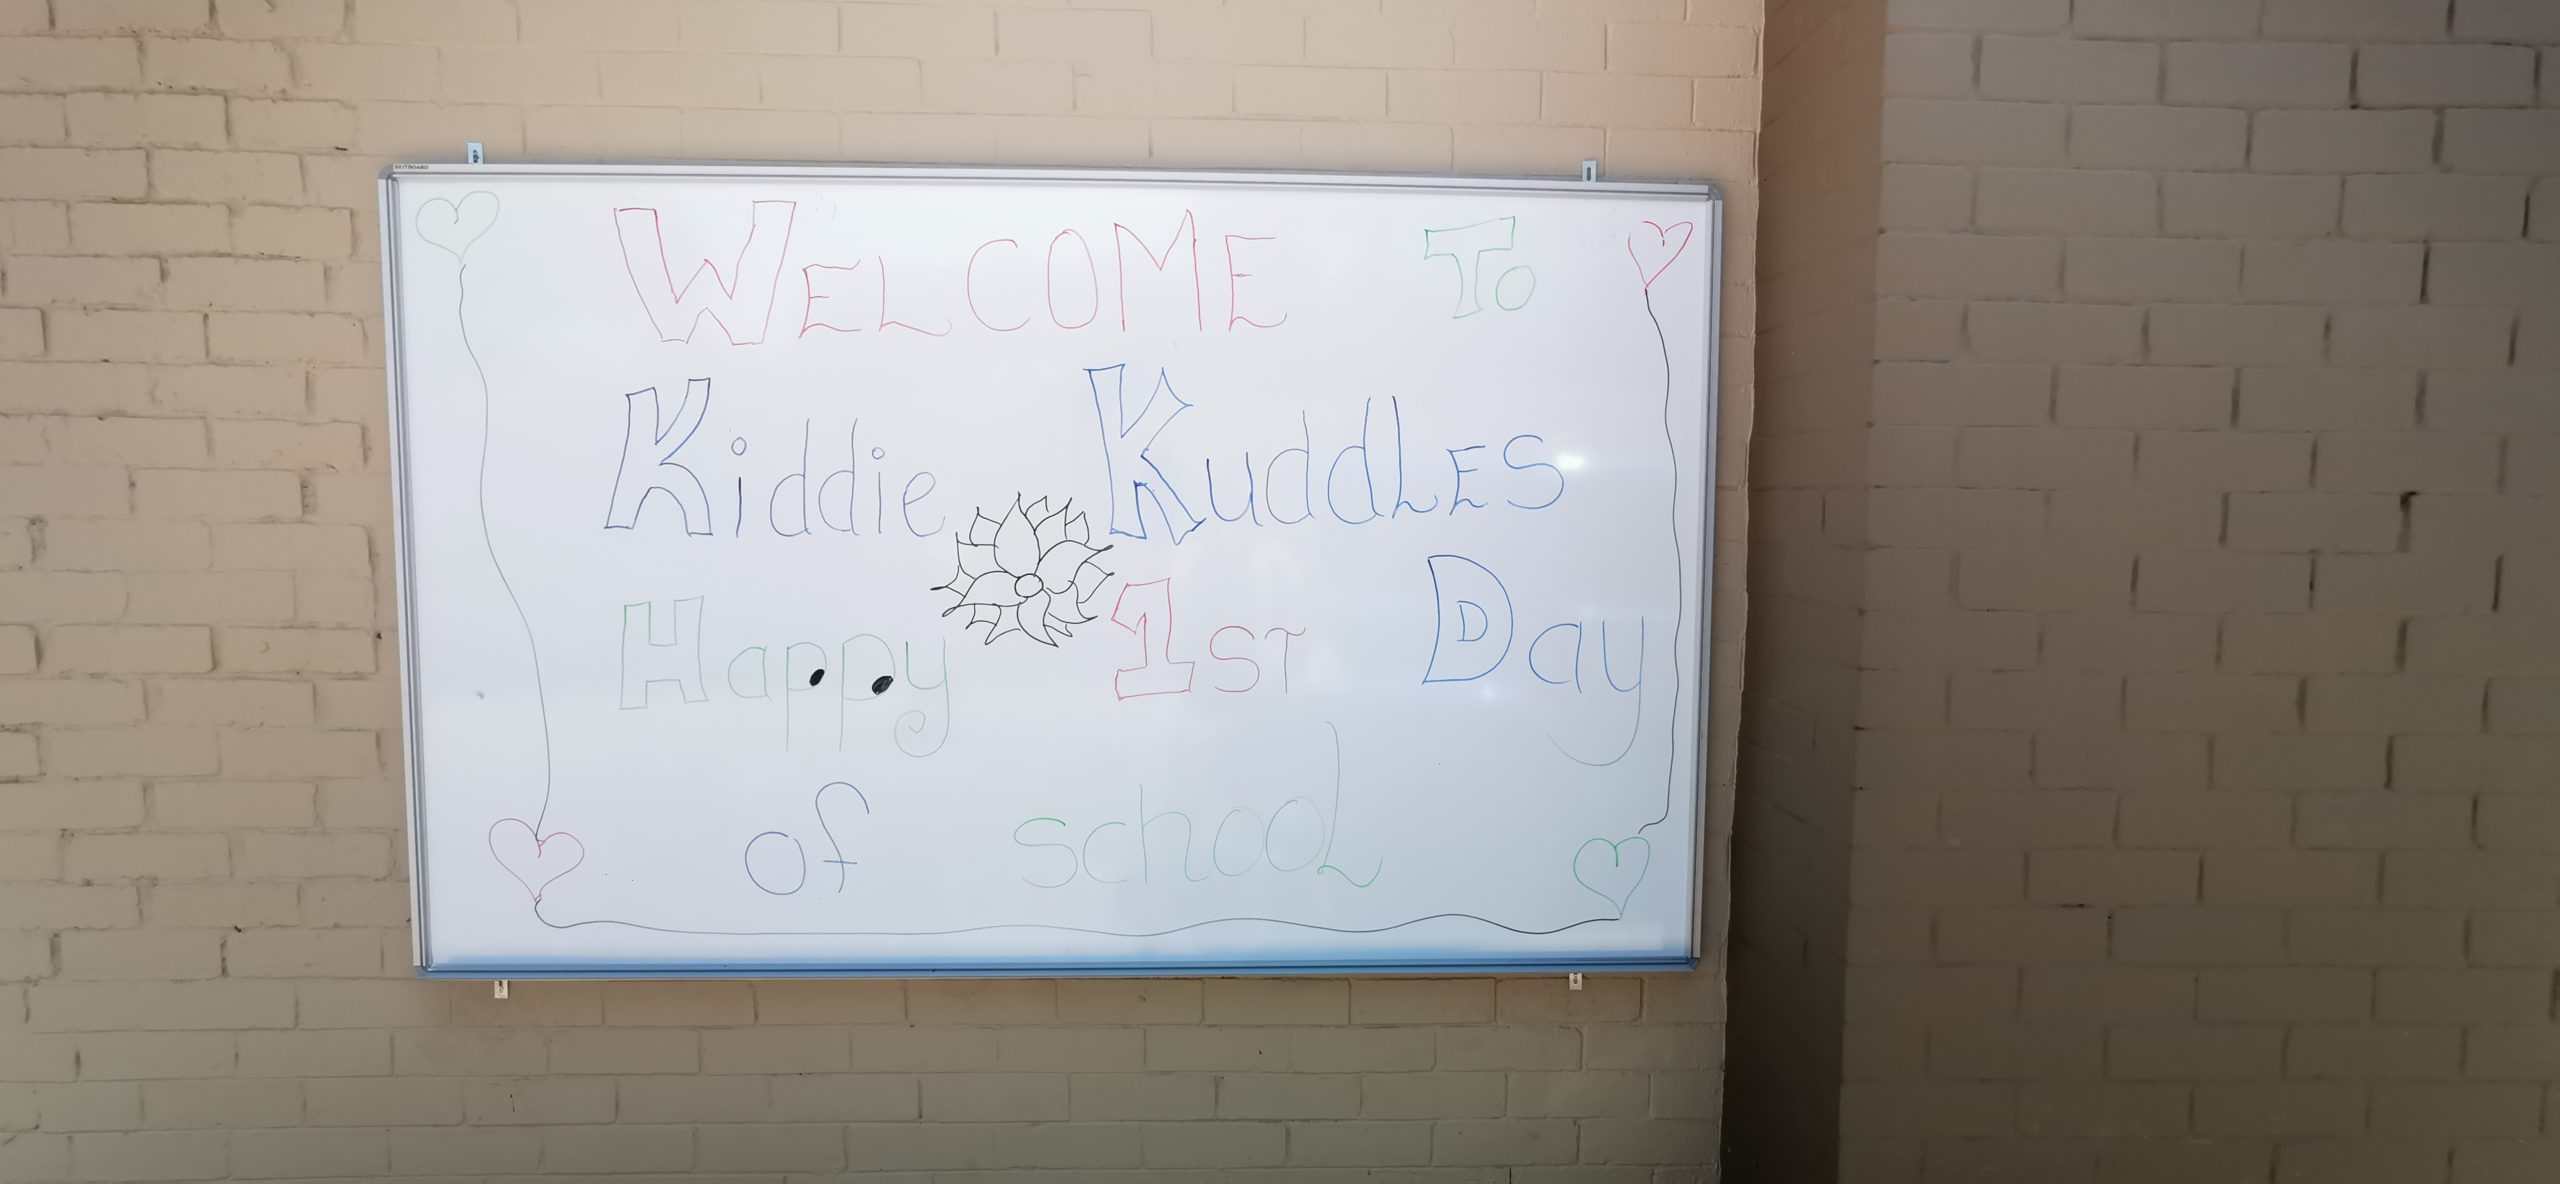 WELCOME To
Kiddie KuddLES
Happy 1ST Day
of school